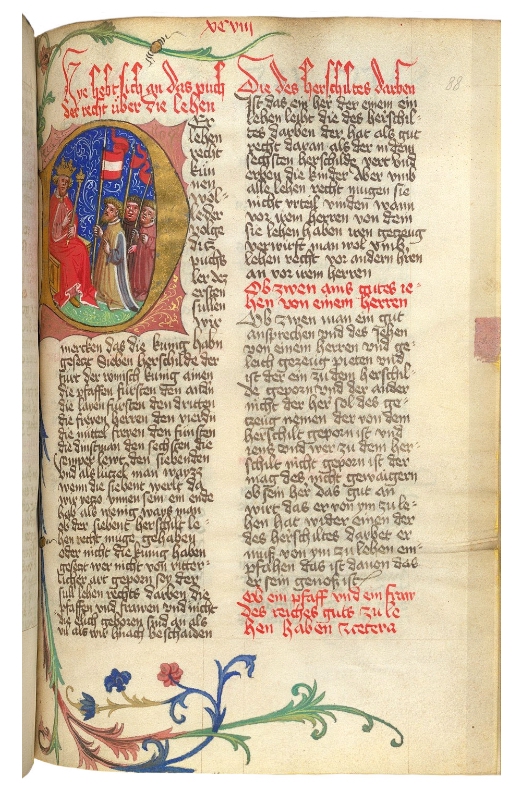 xcviii
88
Hye hebt sich an das puch
der recht über die lehen
Wer
lehen
recht
kün
nen
wol
l der
volge
ditz
puchs
ler des
ersten
süllen
wir
mercken das die künig habn
gesetzt Sieben herschilde der
fürt der römisch künig ainen
die pfaffen fürsten den andern
die layen fürsten den dritten
die freyen herren den vierdn
die mittel freyen den fünften
die dinstman den sechsten die
semper lewt den siebenden
vnd als lützel man wayzz
wenn die siebent werlt da
wir yetzo ynnen sein ein ende
hab als wenig ways man
ob der siebent herschilt le-
hen recht müge gehaben
oder nicht die künig haben
gesetzt wer nicht von ritter-
licher art geporn sey der
süll lehen rechts darben die
pfaffen vnd frawen vnd nicht
die elich geboren sind an als
vil als wir hinach beschaiden
Die des herschiltes darben
Ist das ein her der einem ein
lehen leyht die des herschil-
tes darben der hat als gut
recht daran als der in dem
sechsten herschilde vert vnd
erben die kinder Aber vmb
alle lehen recht mügen sie
nicht vrteil vinden wann
vor irem herren von dem
sie lehen haben iren getzeug
verwirft man wol vmb
lehen recht vor andern hren
an vor irem herren
Ob zwen ains gutes ie-
hen von einem herren
Ob zwen man ein gut
ansprechen vnd des Jehen
von einem herren vnd ge-
leich gezeug pieten vnd
ist der ein zu den herschil-
de geporn vnd der ander
nicht der her sol des ge-
zeug nemen der von dem
herschilt geporn ist vnd
iens vnd wer zu dem her-
schilt nicht geporn ist der
mag des nicht gewaigern
ob sein her das gut an
wirt das er von ym zu le-
hen hat wider einen der
des herschiltes darbet er
muß von ym zu lehen em-
pfahen das ist dauon das
er sein genoß ist
Ob ein pfaff vnd ein fraw
des reiches guts zu le
hen haben zcetera